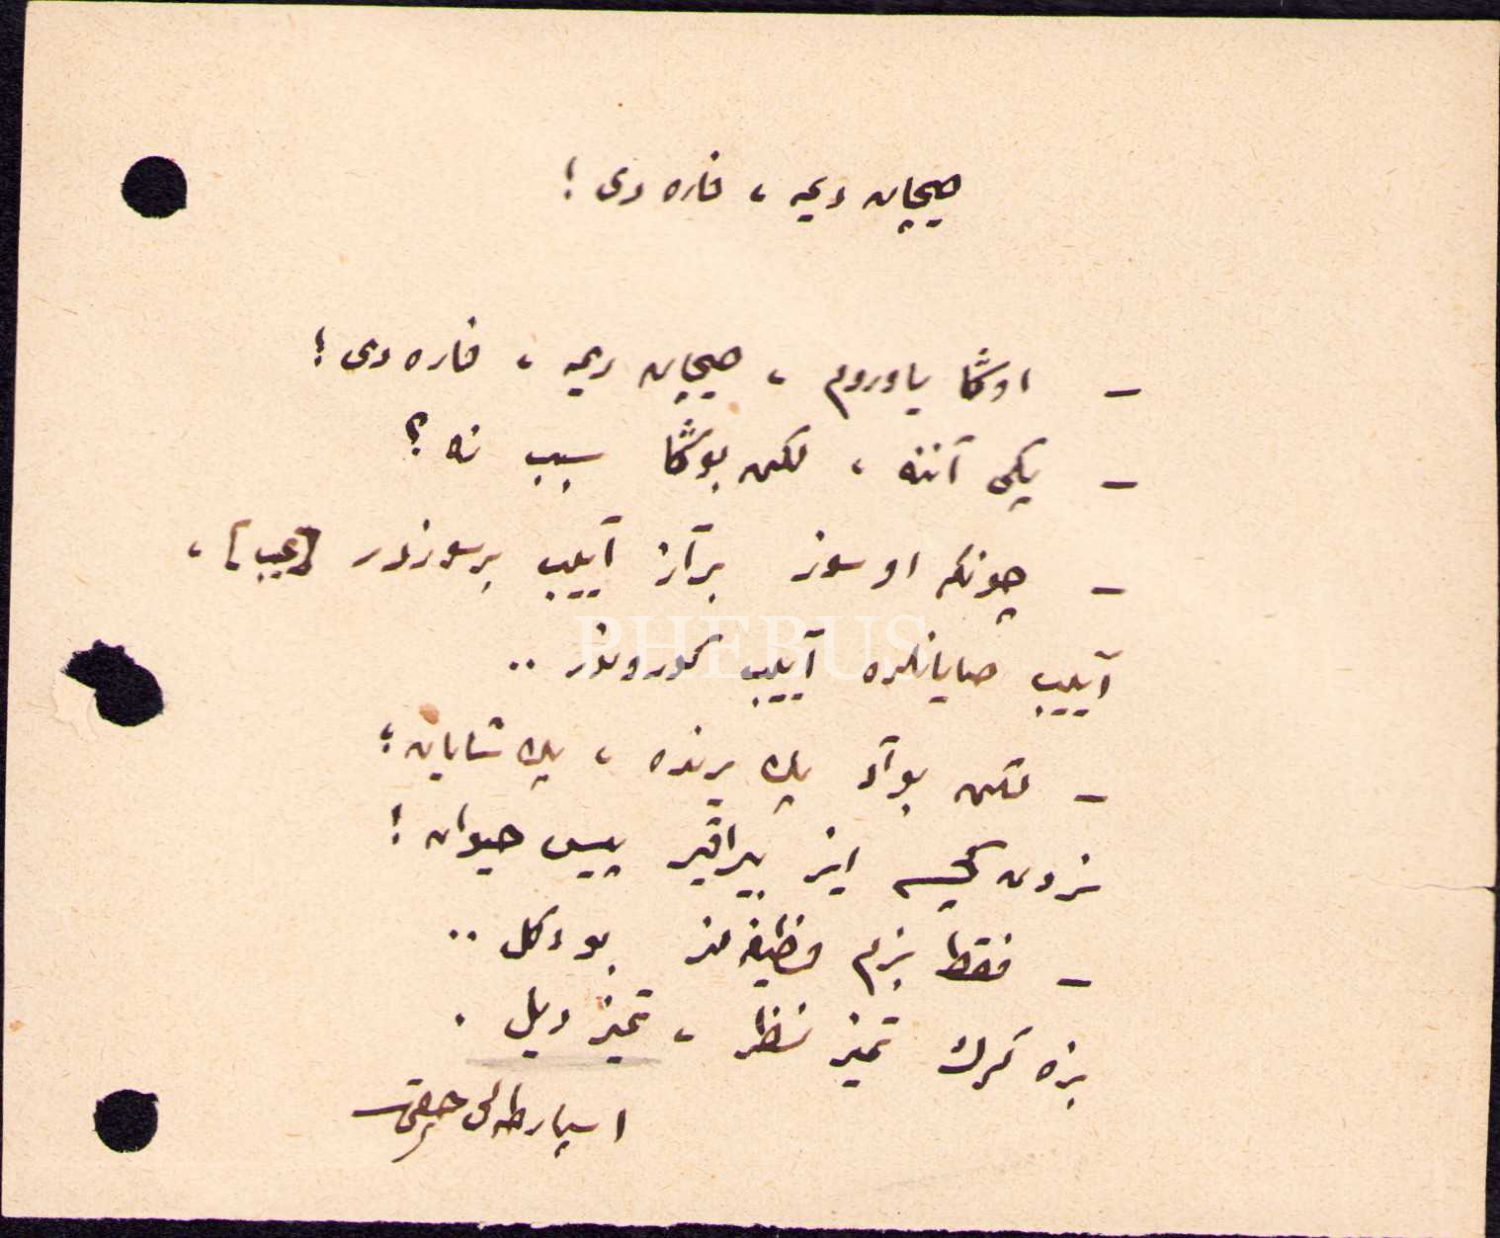 صیچان دیمه ، فاره دی !
ـ اوشكا یاوروم ، صیچان دیمه ، فاره دی !
ـ پكی آننه ، لكن بوشكا سبب نه ؟
ـ چونكه او سوز برآز آییب بر سوزدر [عیب] ،
آییب صایانلره آییب كورونور ..
PHEBUS
ـ لكن بو آد پك یرنده ، پك شایان ؛
نزدن كچسه ایز بیراقیر پیس حیوان !
ـ فقط بزم وظیفه مز بو دكل ..
بزه كرك تمیز نظر ، تمیز دیل .
اسپارطه لی حقی